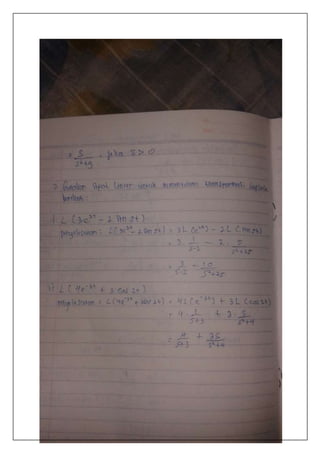 = S / S²+9 , jika S > 0
2. Gunakan sifat linier untuk menentukan transformasi laplace berikut
i) L (3e²ᵗ - 2 sin 5t)
penyelesaian : L(3e²ᵗ - 2 sin 5t) = 3L (e²ᵗ) - 2L (sin 5t)
= 3 . 1/S-2 - 2 . 5/S²+25
= 3/S-2 - 10/S²+25
ii) L (4e⁻³ᵗ + 3 cos 2t)
penyelesaian = L (4e⁻³ᵗ + 3 cos 2t) = 4L (e⁻³ᵗ) + 3L (cos 2t)
= 4 . 1/S+3 + 3 . S/S²+4
= 4/S+3 + 3S/S²+4